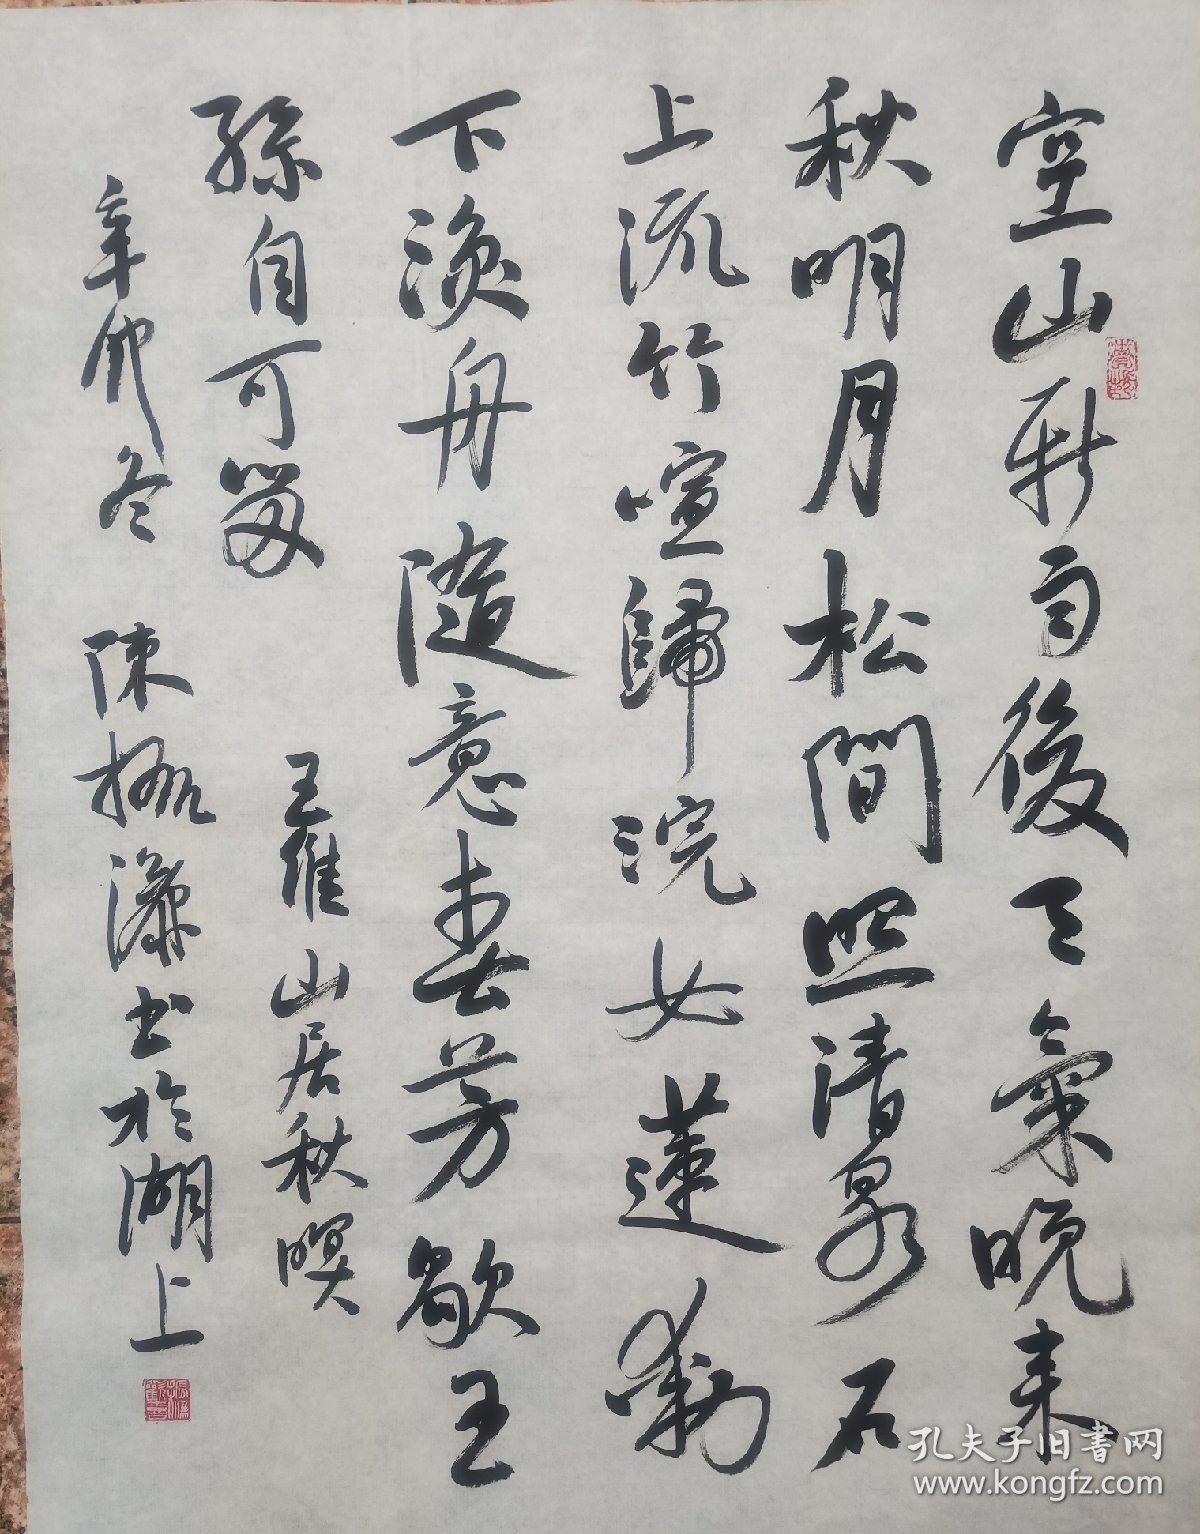 空山新雨後天氣晚来
秋明月松間照清泉石
上流竹喧歸浣女蓮動
下漁舟隨意春芳歇王
孫自可留
王維山居秋暝
辛卯冬 陳振濂书於湖上
孔夫子旧書网
www.kongfz.com